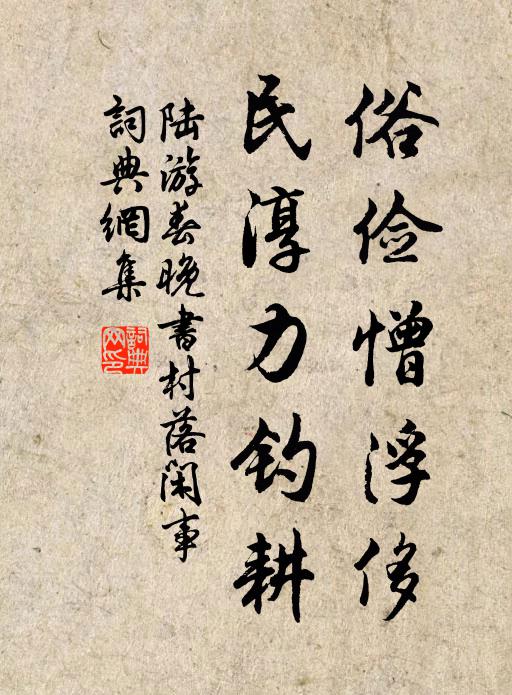 俗俭憎浮侈
民淳力钓耕
陆游春晚書村落闲事
詞典網集
詞典网印